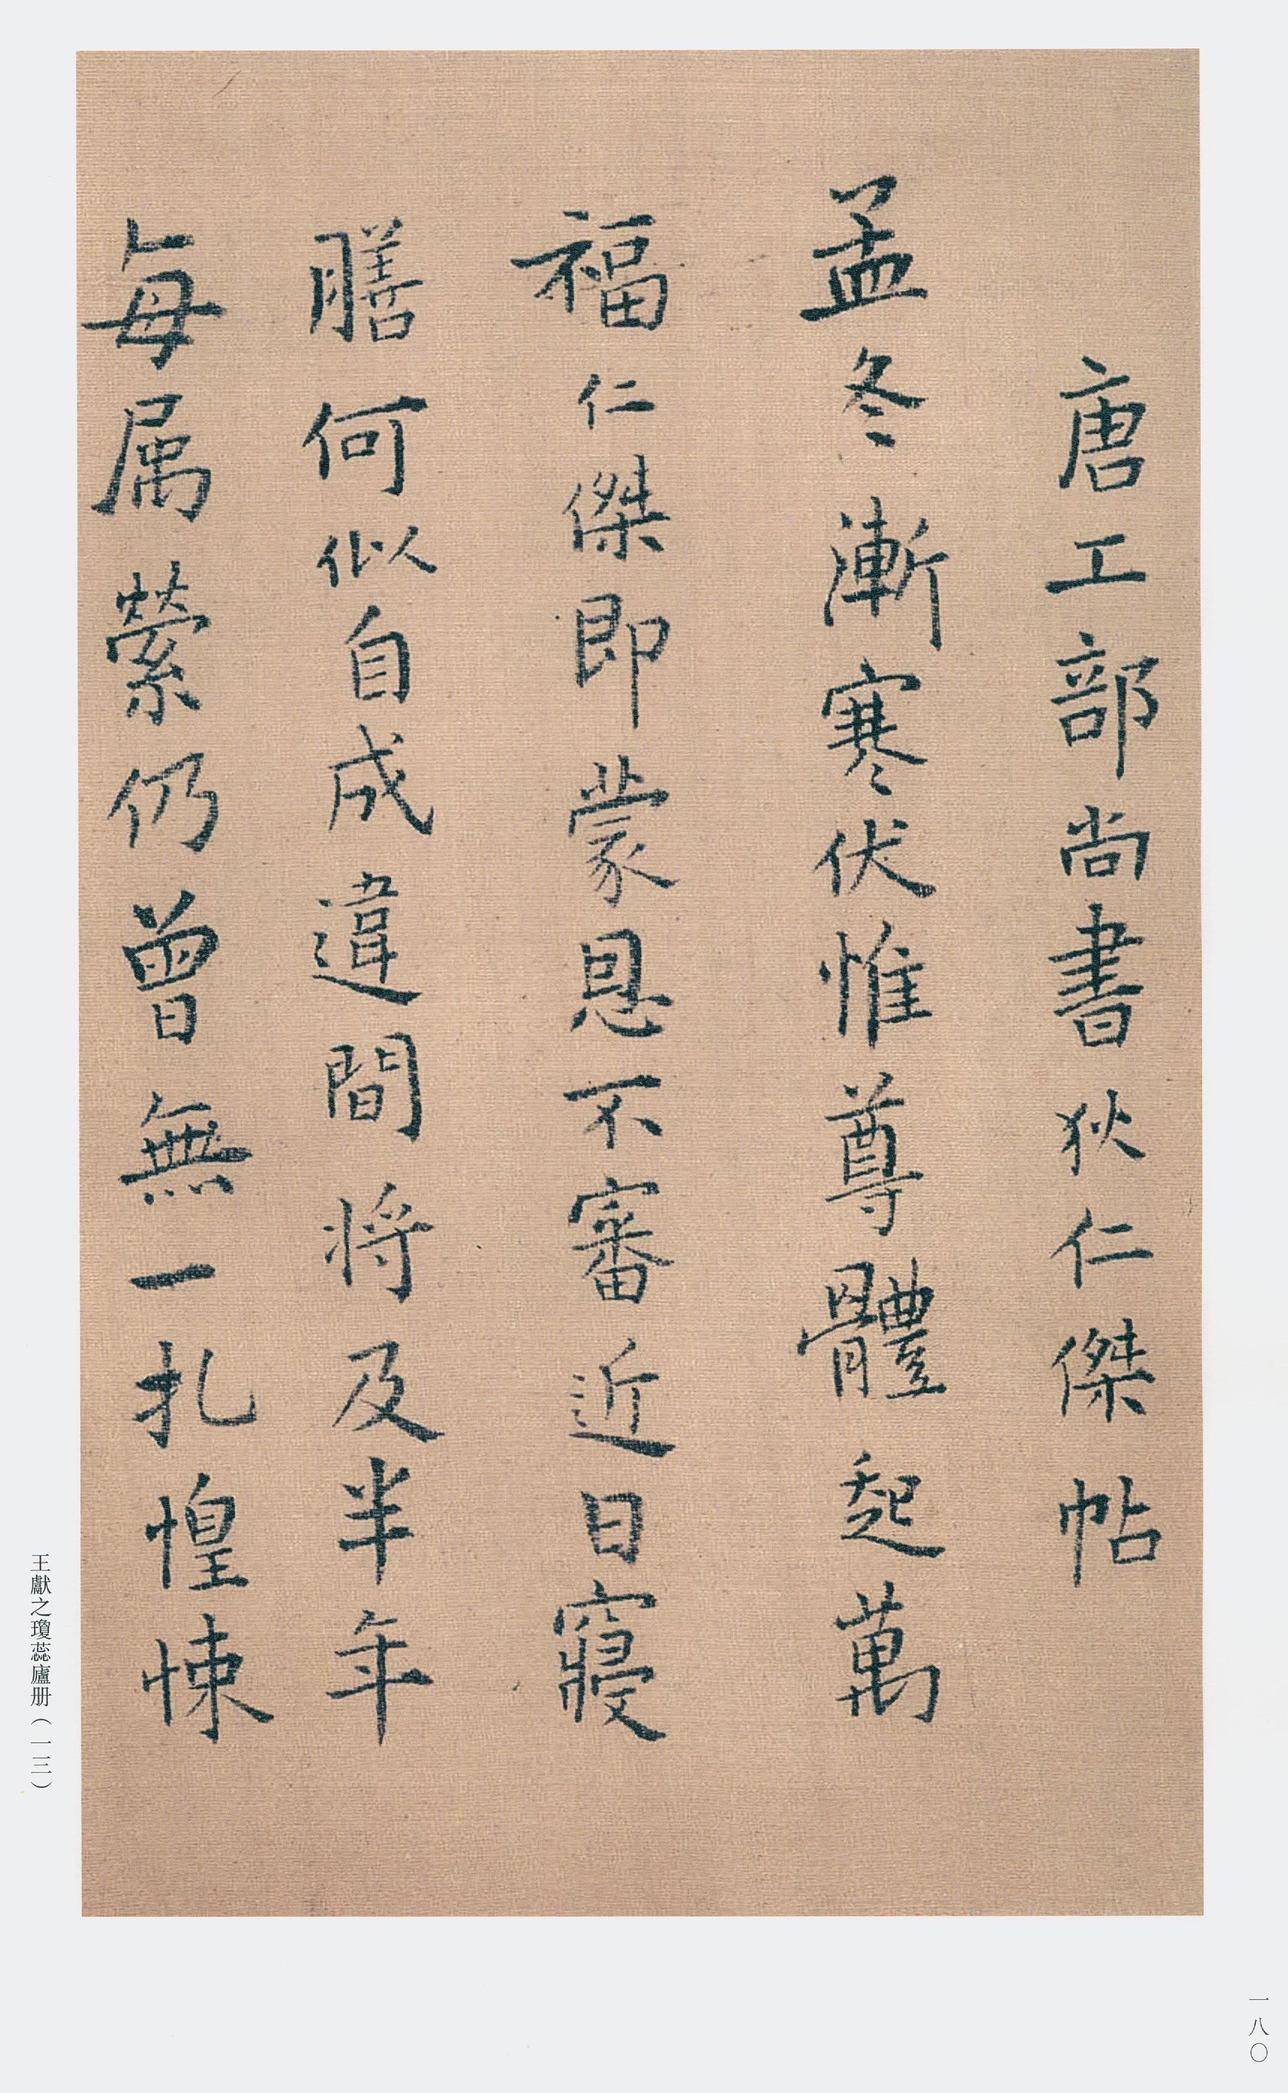 唐工部尚書狄仁傑帖
孟冬漸寒伏惟尊體起萬
福仁傑即蒙恩不審近日寢
膳何似自成違間將及半年
每属縈仍曾無一扎惶悚
王獻之瓊蕊廬册（一三）
一八〇